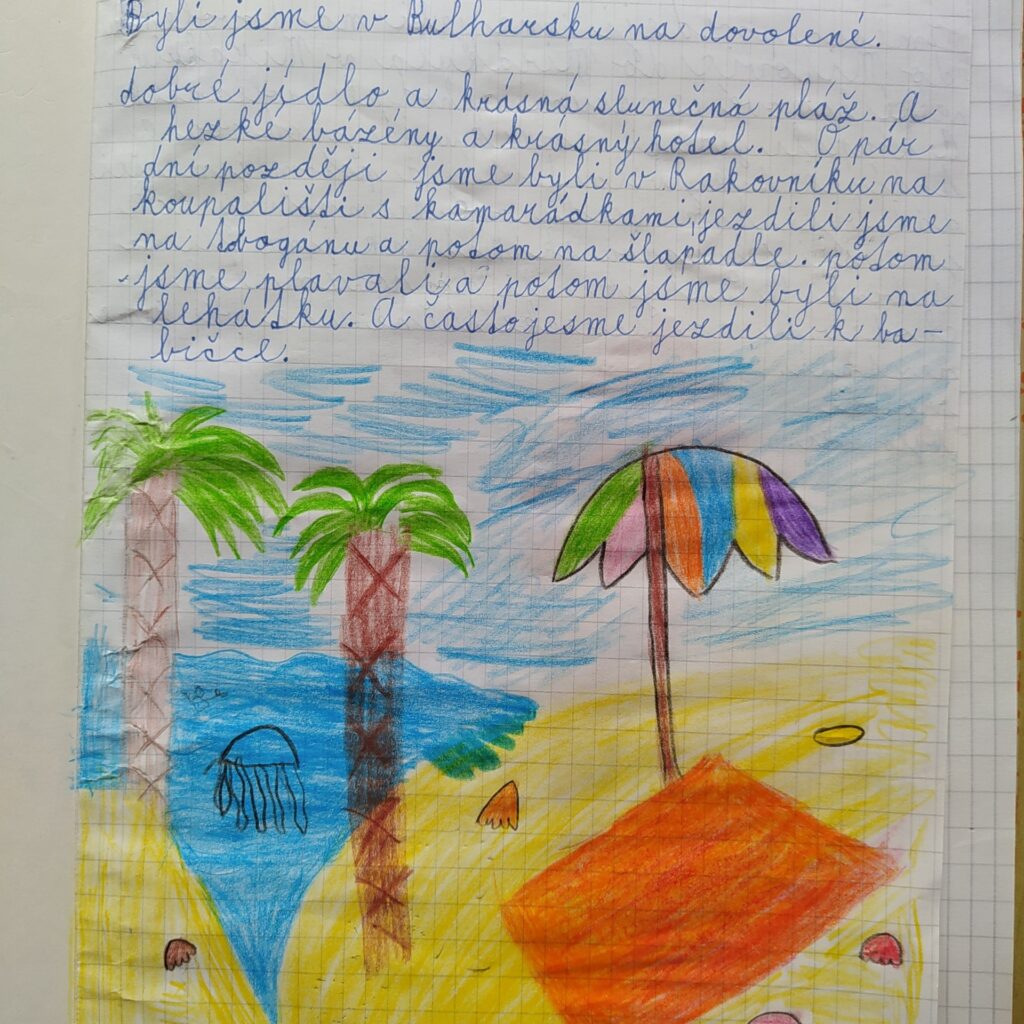 Byli jsme v Bulharsku na dovolené.
dobré jídlo a krásná slunečná pláž. A
hezké bázény a krásný hotel. O pár
dní později jsme byli v Rakovníku na
koupališti s kamarádkami, jezdili jsme
na tobogánu a potom na šlapadle. potom
jsme plavali, a potom jsme byli na
lehátku. A často jesme jezdili k ba-
bičce.